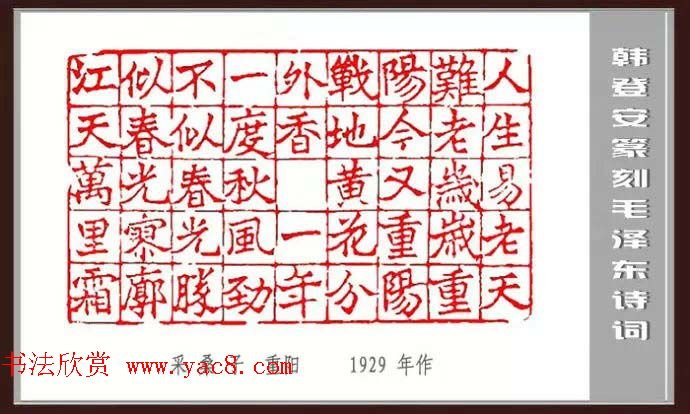 人生易老天
難老歲歲重
陽今又重陽
戰地黃花分
外香 一年
一度秋風勁
不似春光勝
似春光寥廓
江天萬里霜
韩登安篆刻毛泽东诗词
采桑子 重阳 1929 年作
书法欣赏 www.yac8.com